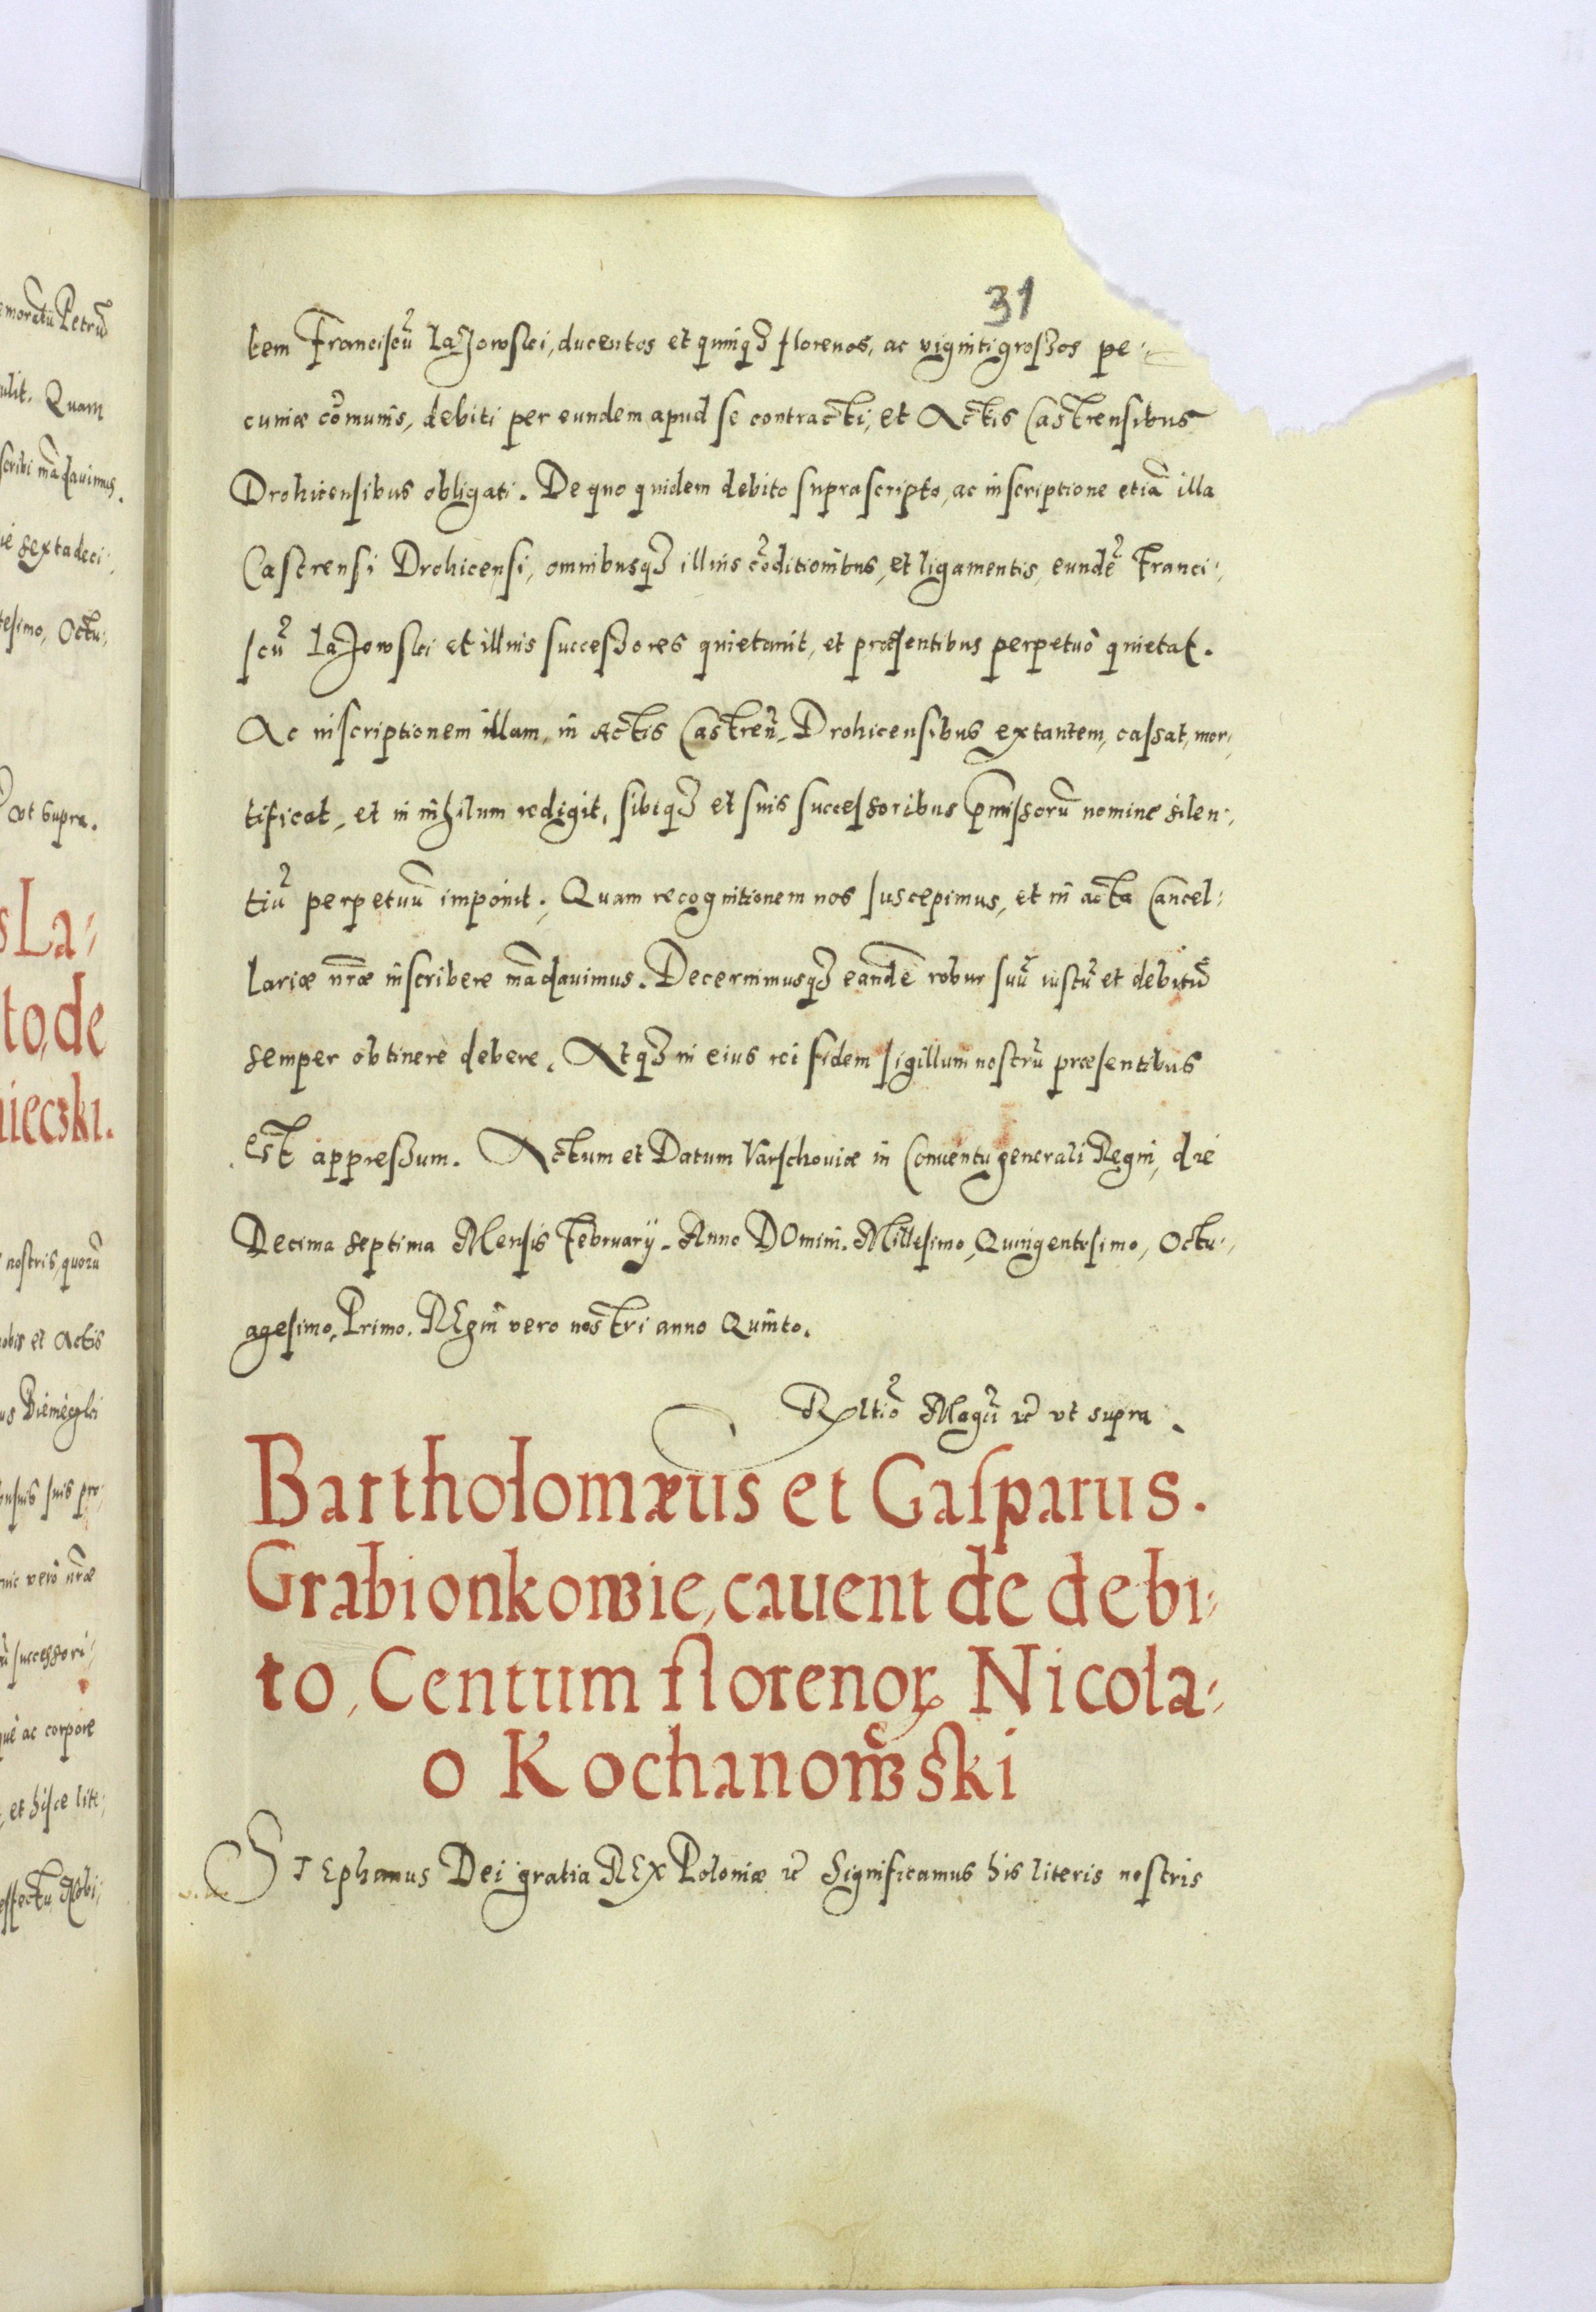 31
tem Franciscũ Lazowski, ducentos et quinqꝫ florenos, ac viginti grossos pe-
cuniæ cõmunis, debiti per eundem apud se contracti, et Actis Castrensibus
Drohicensibus obligati. De quo quidem debito suprascripto, ac inscriptione etiã illa
Castrensi Drohicensi, omnibusqꝫ illius cõditionibus, et ligamentis, eundẽ Franci-
scũ Lazowski et illius successores quietauit, et præsentibus perpetuò quietat.
Ac inscriptionem illam, in Actis Castreñ. Drohicensibus extantem, cassat, mor-
tificat, et in nihilum redigit, sibiqꝫ et suis successoribus p̃missorũ nomine silen-
tiũ perpetuũ imponit. Quam recognitionem nos suscepimus, et in acta Cancel-
lariæ nr̃æ inscribere mãdauimus. Decernimusqꝫ eandẽ robur suũ iustũ et debitũ
semper obtinere debere. Atqꝫ in eius rei fidem sigillum nostrũ præsentibus
est appressum. Actum et Datum Varschouiæ in Conuentu generali Regni, die
Decima septima Mensis February. Anno DOmini. Millesimo, Quingentesimo, Octu-
agesimo, Primo. REgni vero nostri anno Quinto.
Rltiõ Magcũ ꝛc̃ vt supra.
Bartholomæus et Gasparus.
Grabionkowie, cauent de debi-
to, Centum florenoꝝ Nicola-
o Kochanowski
STEphanus Dei gratia REX Poloniæ ꝛc̃ Significamus his literis nostris
emoratũ Petrũ
Quam
scribi mãdauimus.
sexta deci-
tesimo, Octu-
vt supra.
s La-
to, de
nieczki.
nostris, quorũ
nobis et Actis
suis pro-
vero nr̃æ
successori-
ac corpore
et hisce lite-